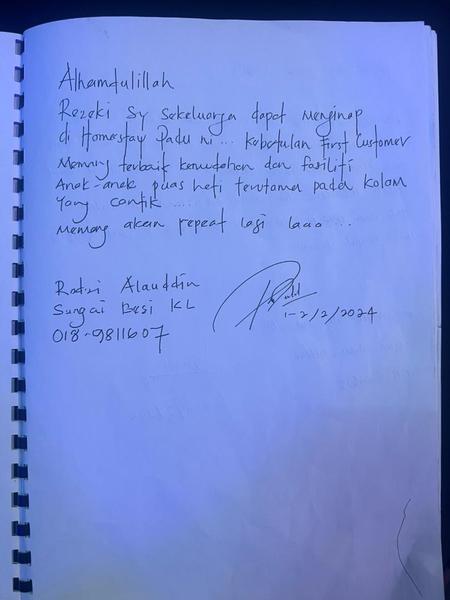 Alhamdulillah
Rezeki Sy sekeluarga dapat menginap
di Homestay Padu ni... kebetulan First Customer
Memang terbaik kemudahan dan fasiliti
Anak-anak puas hati terutama pada kolam
yang cantik.....
Memang akan repeat lagi laaa...
Rodzi Alauddin
Sungai Besi KL
018-9811607
1-2/2/2024